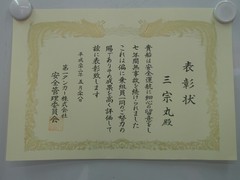 表彰状
三宗丸殿
貴船は安全運航に細心の留意をし
七年間無事故を続けられました
これは偏に乗組員一同の努力の
賜でありその成果を高く評価して
茲に表彰致します
第一タンカー株式会社
安全管理委員会